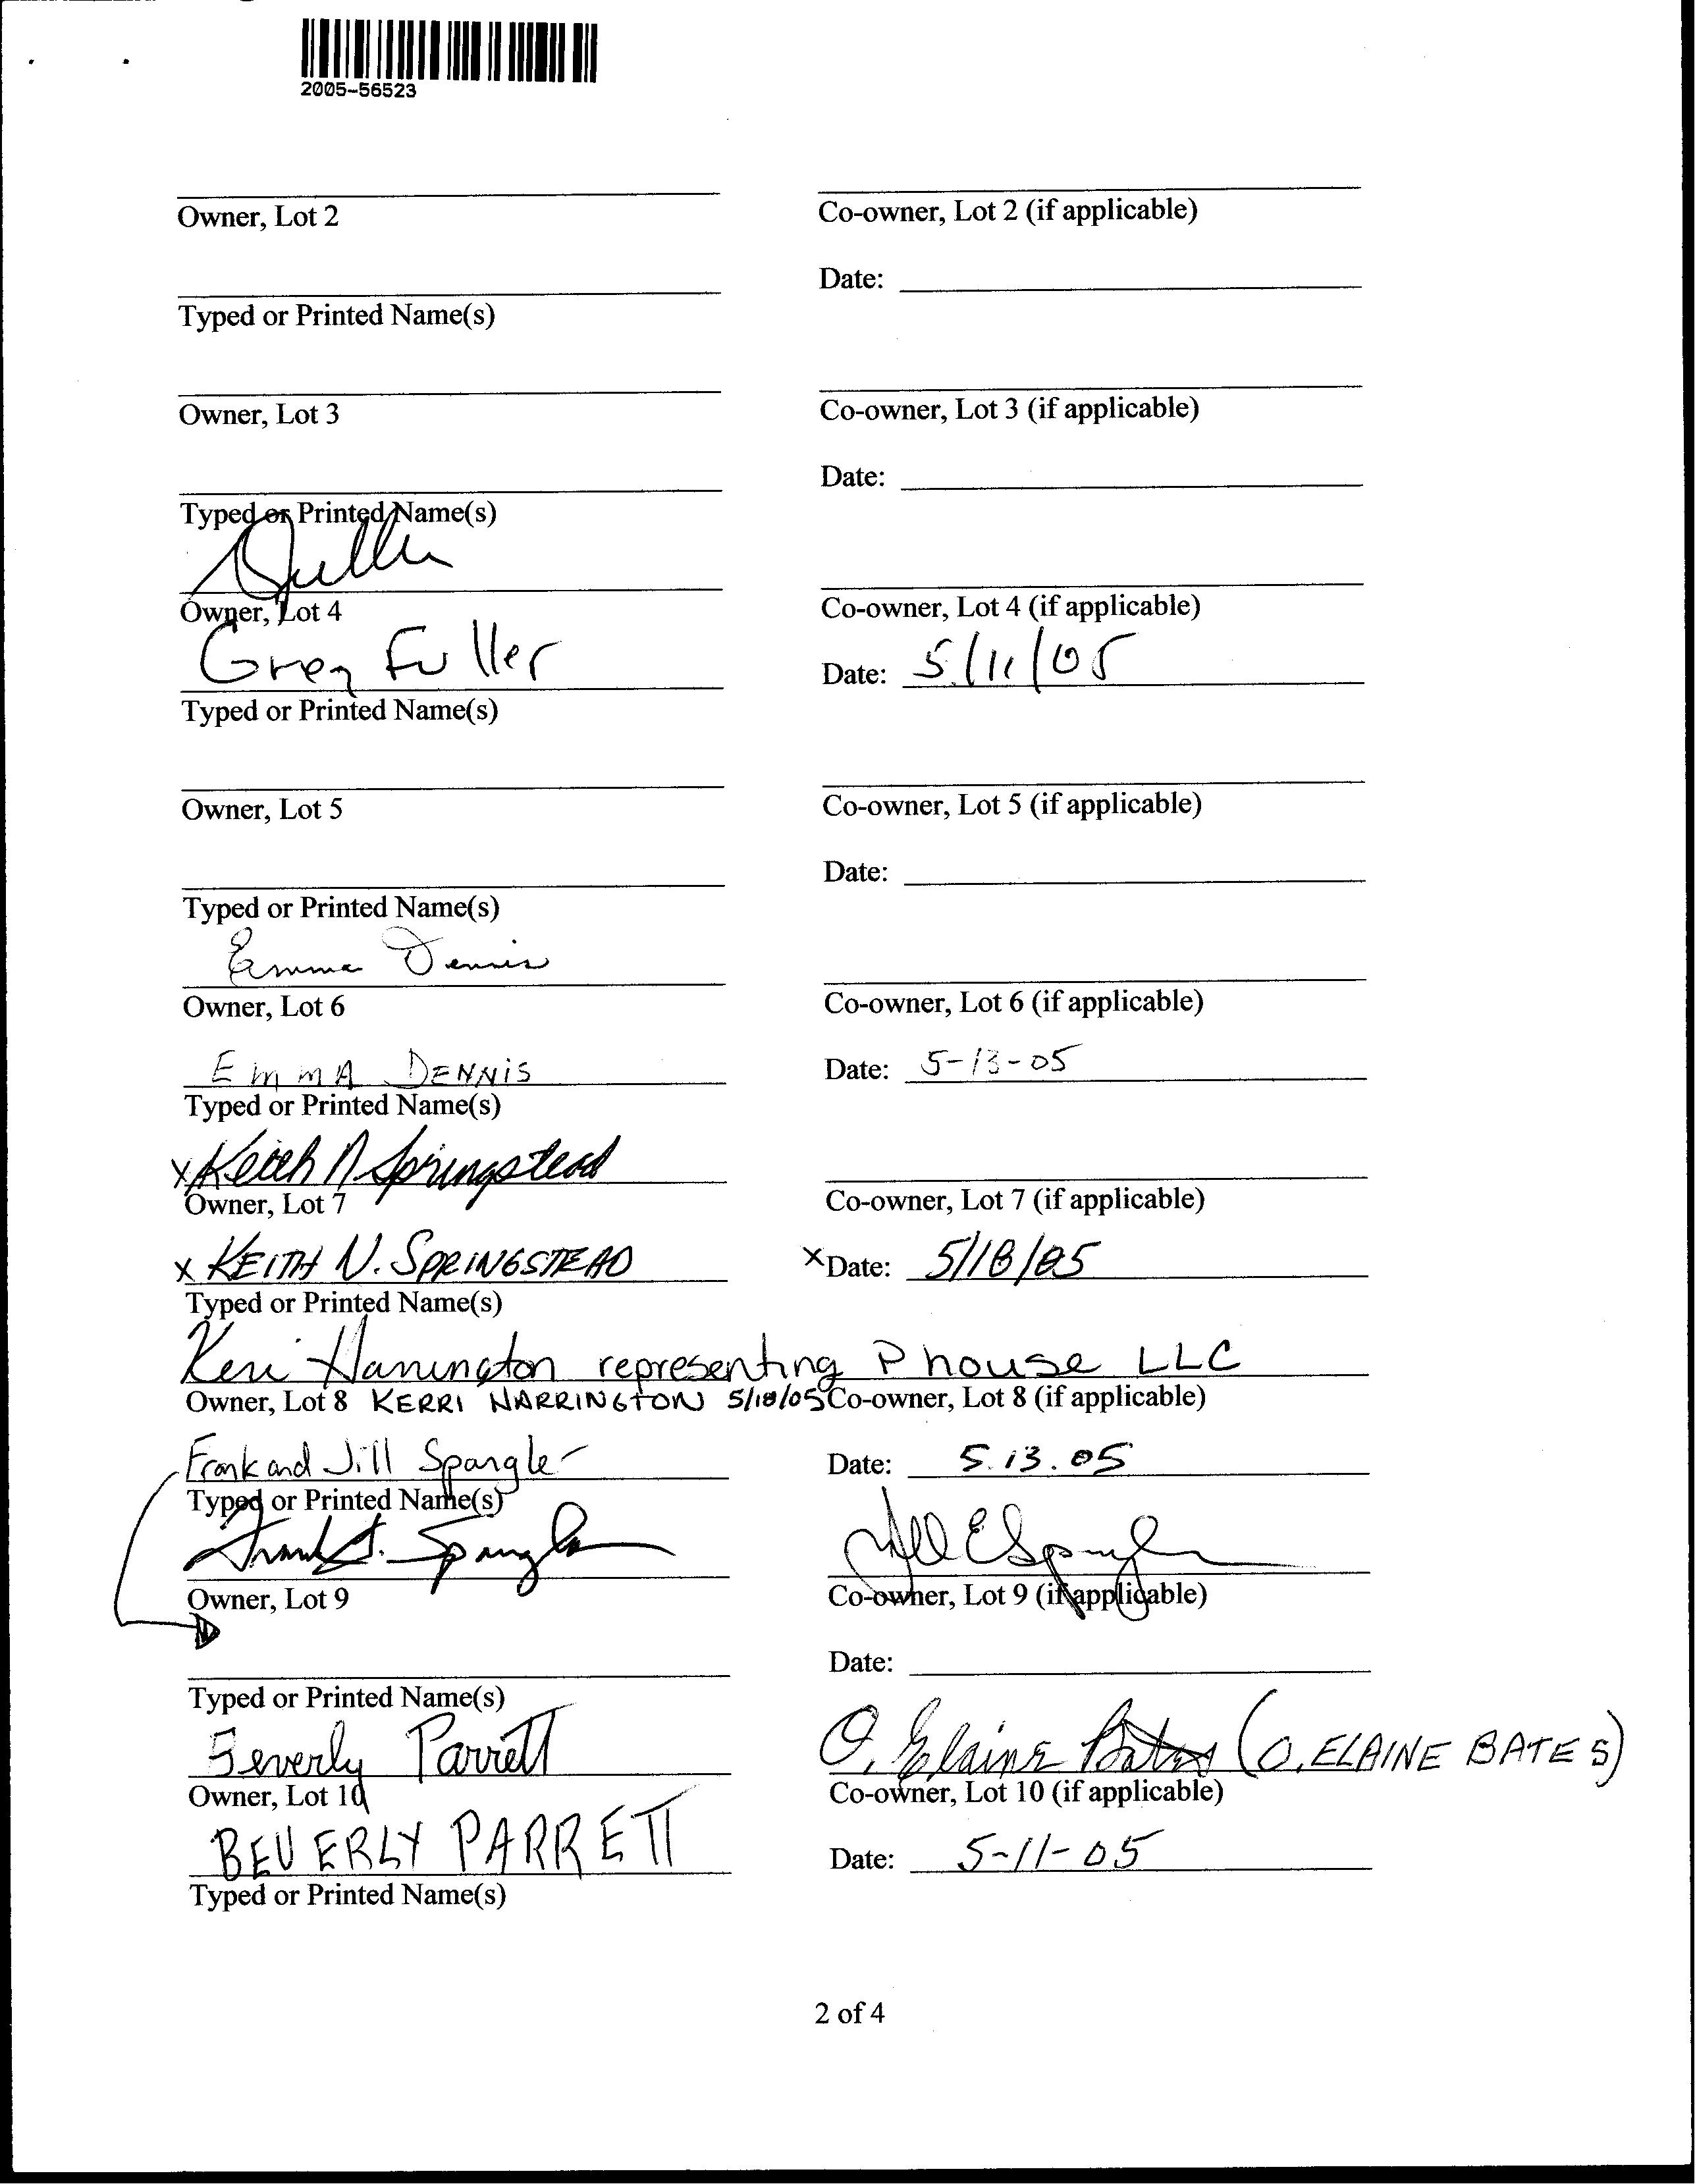 2005-56523
Owner, Lot 2
Co-owner, Lot 2 (if applicable)
Date:
Typed or Printed Name(s)
Owner, Lot 3
Co-owner, Lot 3 (if applicable)
Date:
Typed or Printed Name(s)
Owner, Lot 4
Co-owner, Lot 4 (if applicable)
Greg Fuller
Date: 5/11/05
Typed or Printed Name(s)
Owner, Lot 5
Co-owner, Lot 5 (if applicable)
Date:
Typed or Printed Name(s)
Emma Dennis
Owner, Lot 6
Co-owner, Lot 6 (if applicable)
EmmA DENNiS
Date: 5-13-05
Typed or Printed Name(s)
x Keith N Springstead
Owner, Lot 7
Co-owner, Lot 7 (if applicable)
x KEITH N. SPRINGSTEAD
x Date: 5/18/05
Typed or Printed Name(s)
Kerri Harrington representing P house LLC
Owner, Lot 8 KERRI HARRINGTON 5/18/05 Co-owner, Lot 8 (if applicable)
Frank and Jill Spangler
Date: 5.13.05
Typed or Printed Name(s)
Frank S. Spangler
Jill E Spangler
Owner, Lot 9
Co-owner, Lot 9 (if applicable)
Date:
Typed or Printed Name(s)
Beverly Parrett
O. Elaine Bates (O. ELAINE BATES)
Owner, Lot 10
Co-owner, Lot 10 (if applicable)
BEVERLY PARRETT
Date: 5-11-05
Typed or Printed Name(s)
2 of 4